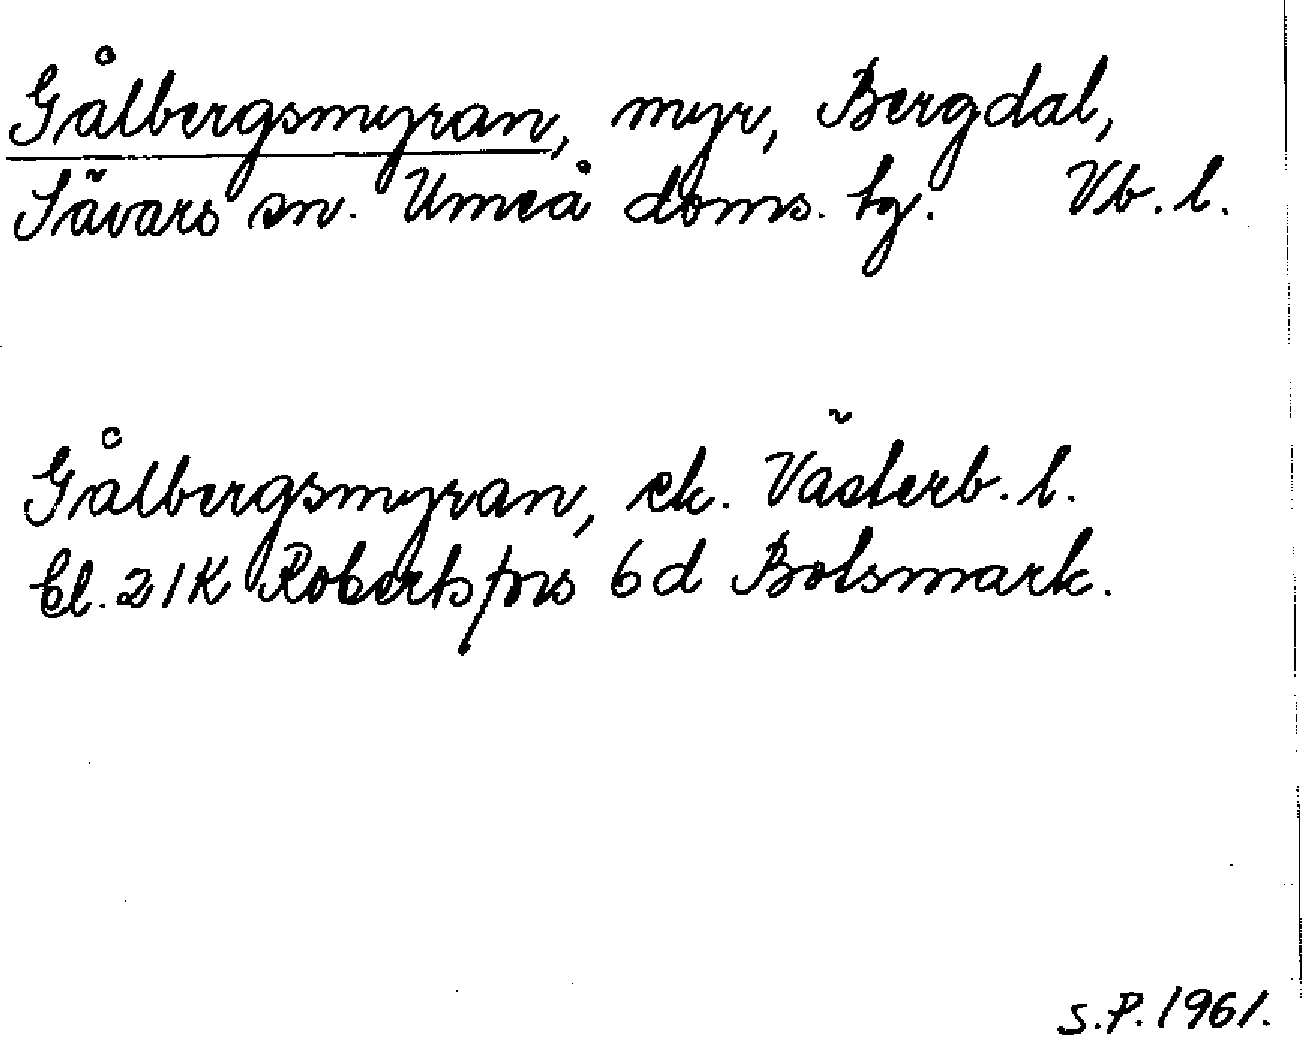 Gålbergsmyran, myr, Bergdal,
Sävars sn. Umeå doms. tg. Vb. l.
Gålbergsmyran, ek. Västerb. l.
bl. 21K Robertsfors 6d Botsmark.
S.P. 1961.